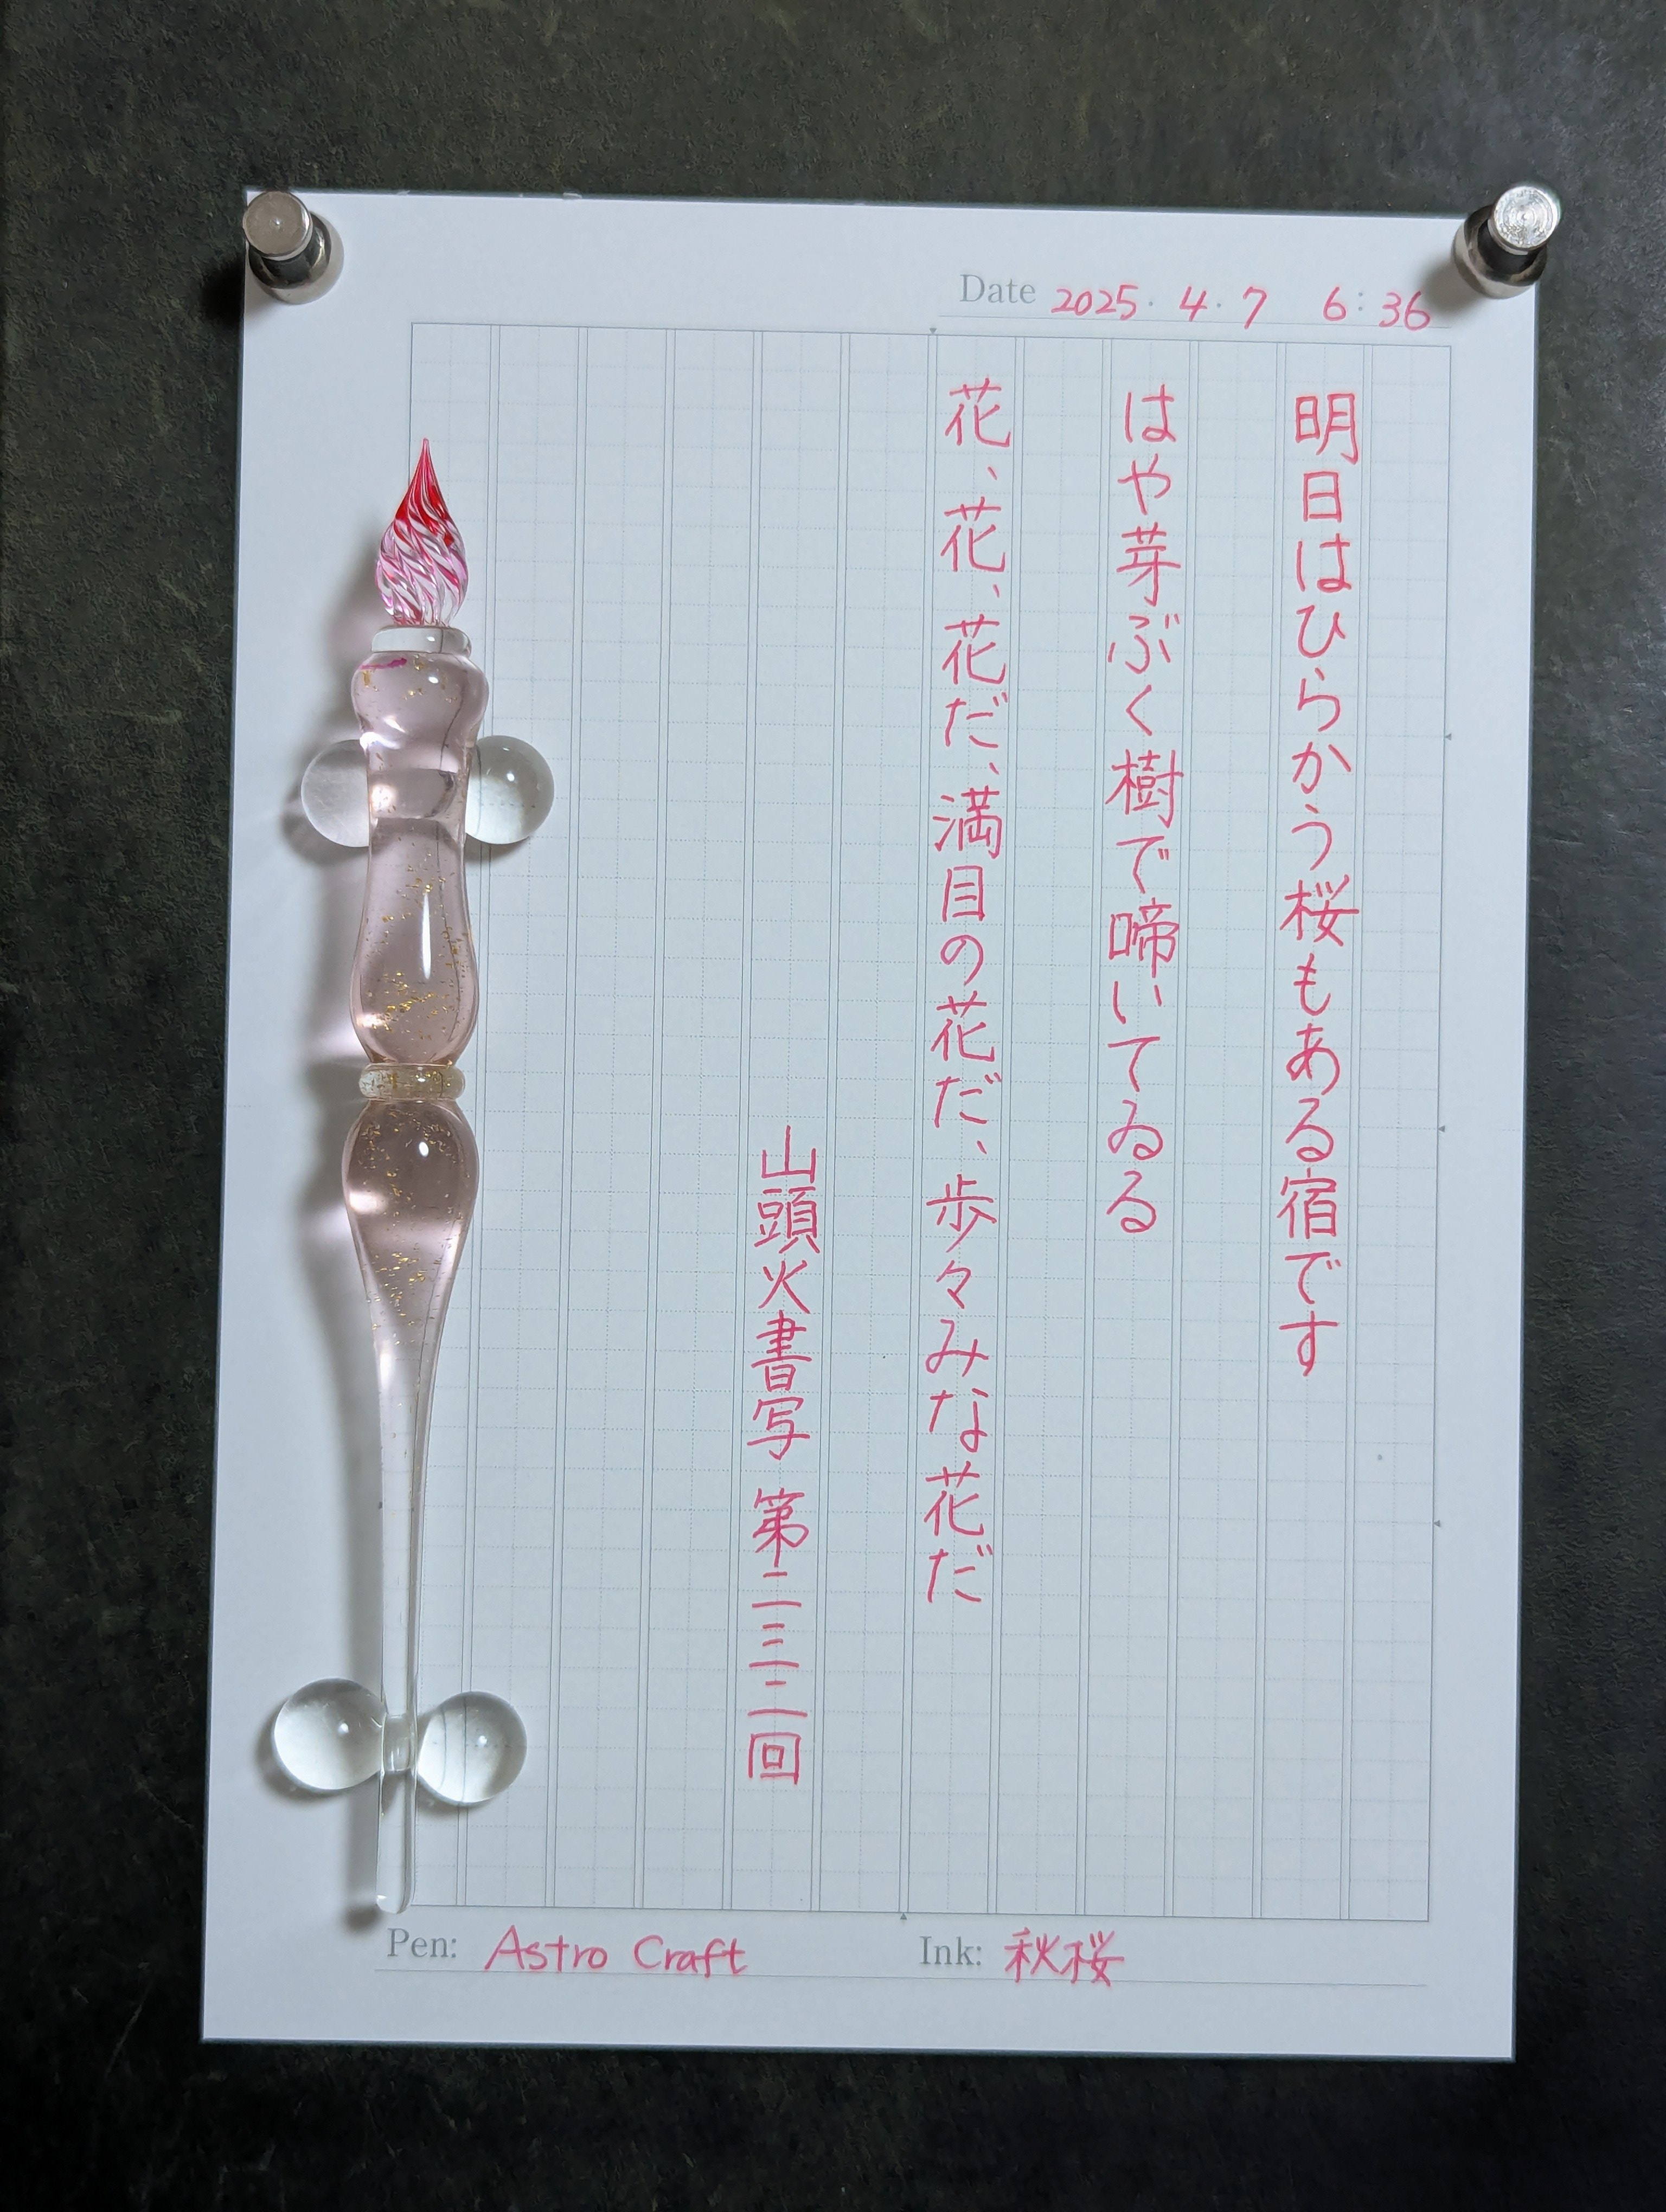 Date 2025. 4. 7 6:36
明日はひらかう桜もある宿です
はや芽ぶく樹で啼いてゐる
花、花、花だ、満目の花だ、歩々みな花だ
山頭火書写 第二三三二回
Pen: Astro Craft
Ink: 秋桜